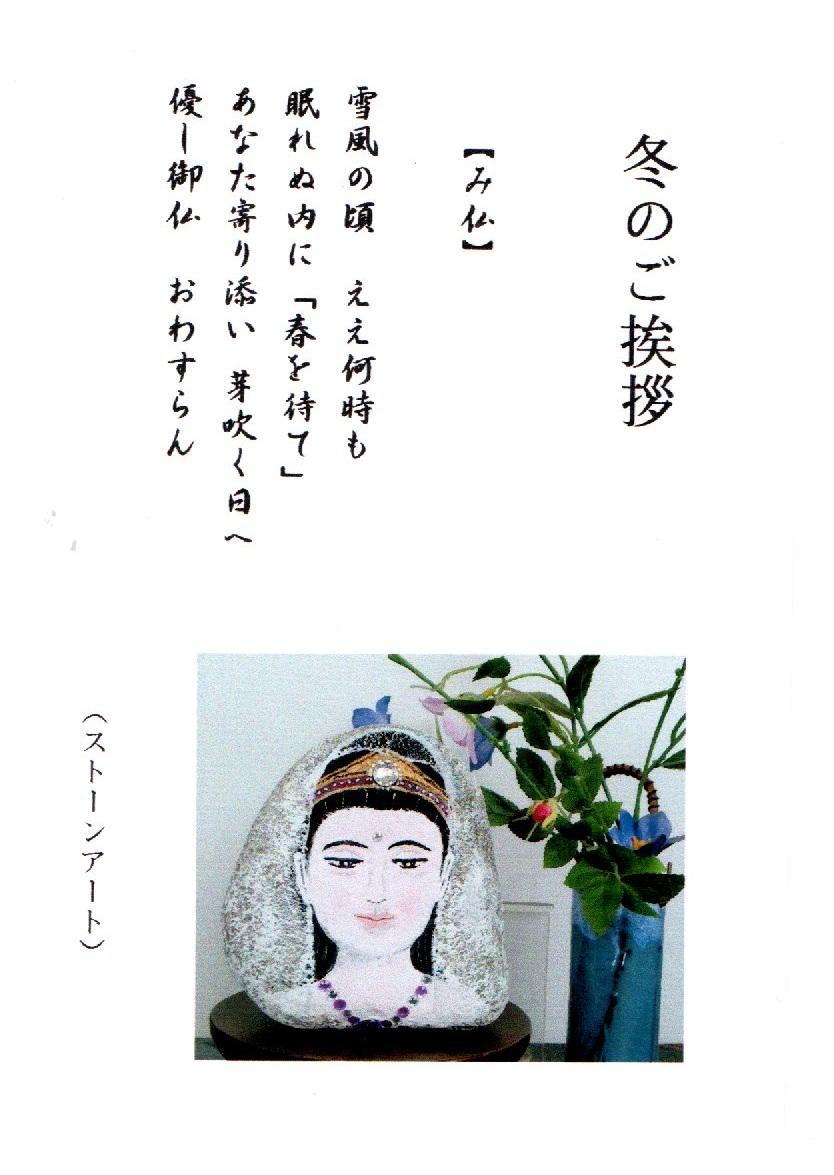 冬のご挨拶
【み仏】
雪風の頃　ええ何時も
眠れぬ内に「春を待て」
あなた寄り添い　芽吹く日へ
優し御仏　おわすらん
（ストーンアート）